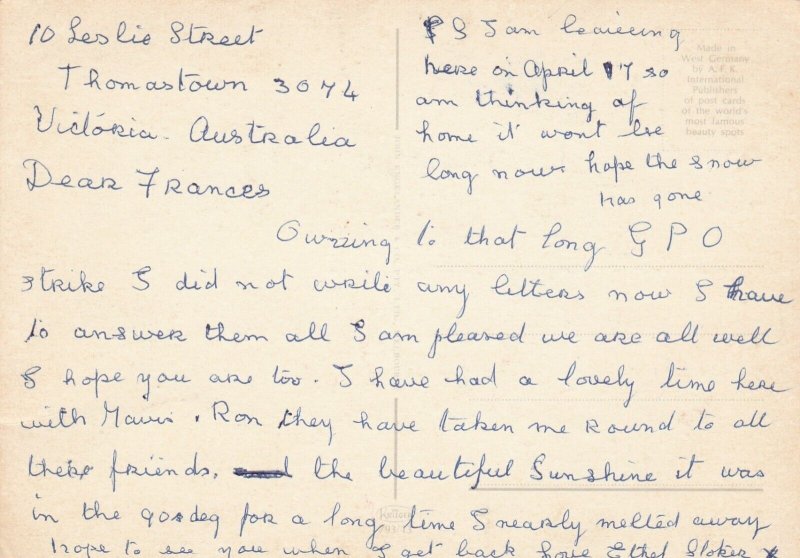 10 Leslie Street
Thomastown 3074
Victoria. Australia
Dear Frances
PS I am leaving
here on April 17 so
am thinking of
home it wont be
long now hope the snow
has gone
Made in
West Germany
by A.F.K.
International
Publishers
of post cards
of the world's
most famous
beauty spots
Owzing to that long G P O
strike I did not write any letters now I have
to answer them all I am pleased we are all well
I hope you are too. I have had a lovely time here
with Mavis. Ron they have taken me Round to all
their friends. the beautiful Sunshine it was
in the 90s deg for a long time I nearly melted away
hope to see you when I get back love Ethel Stoker x